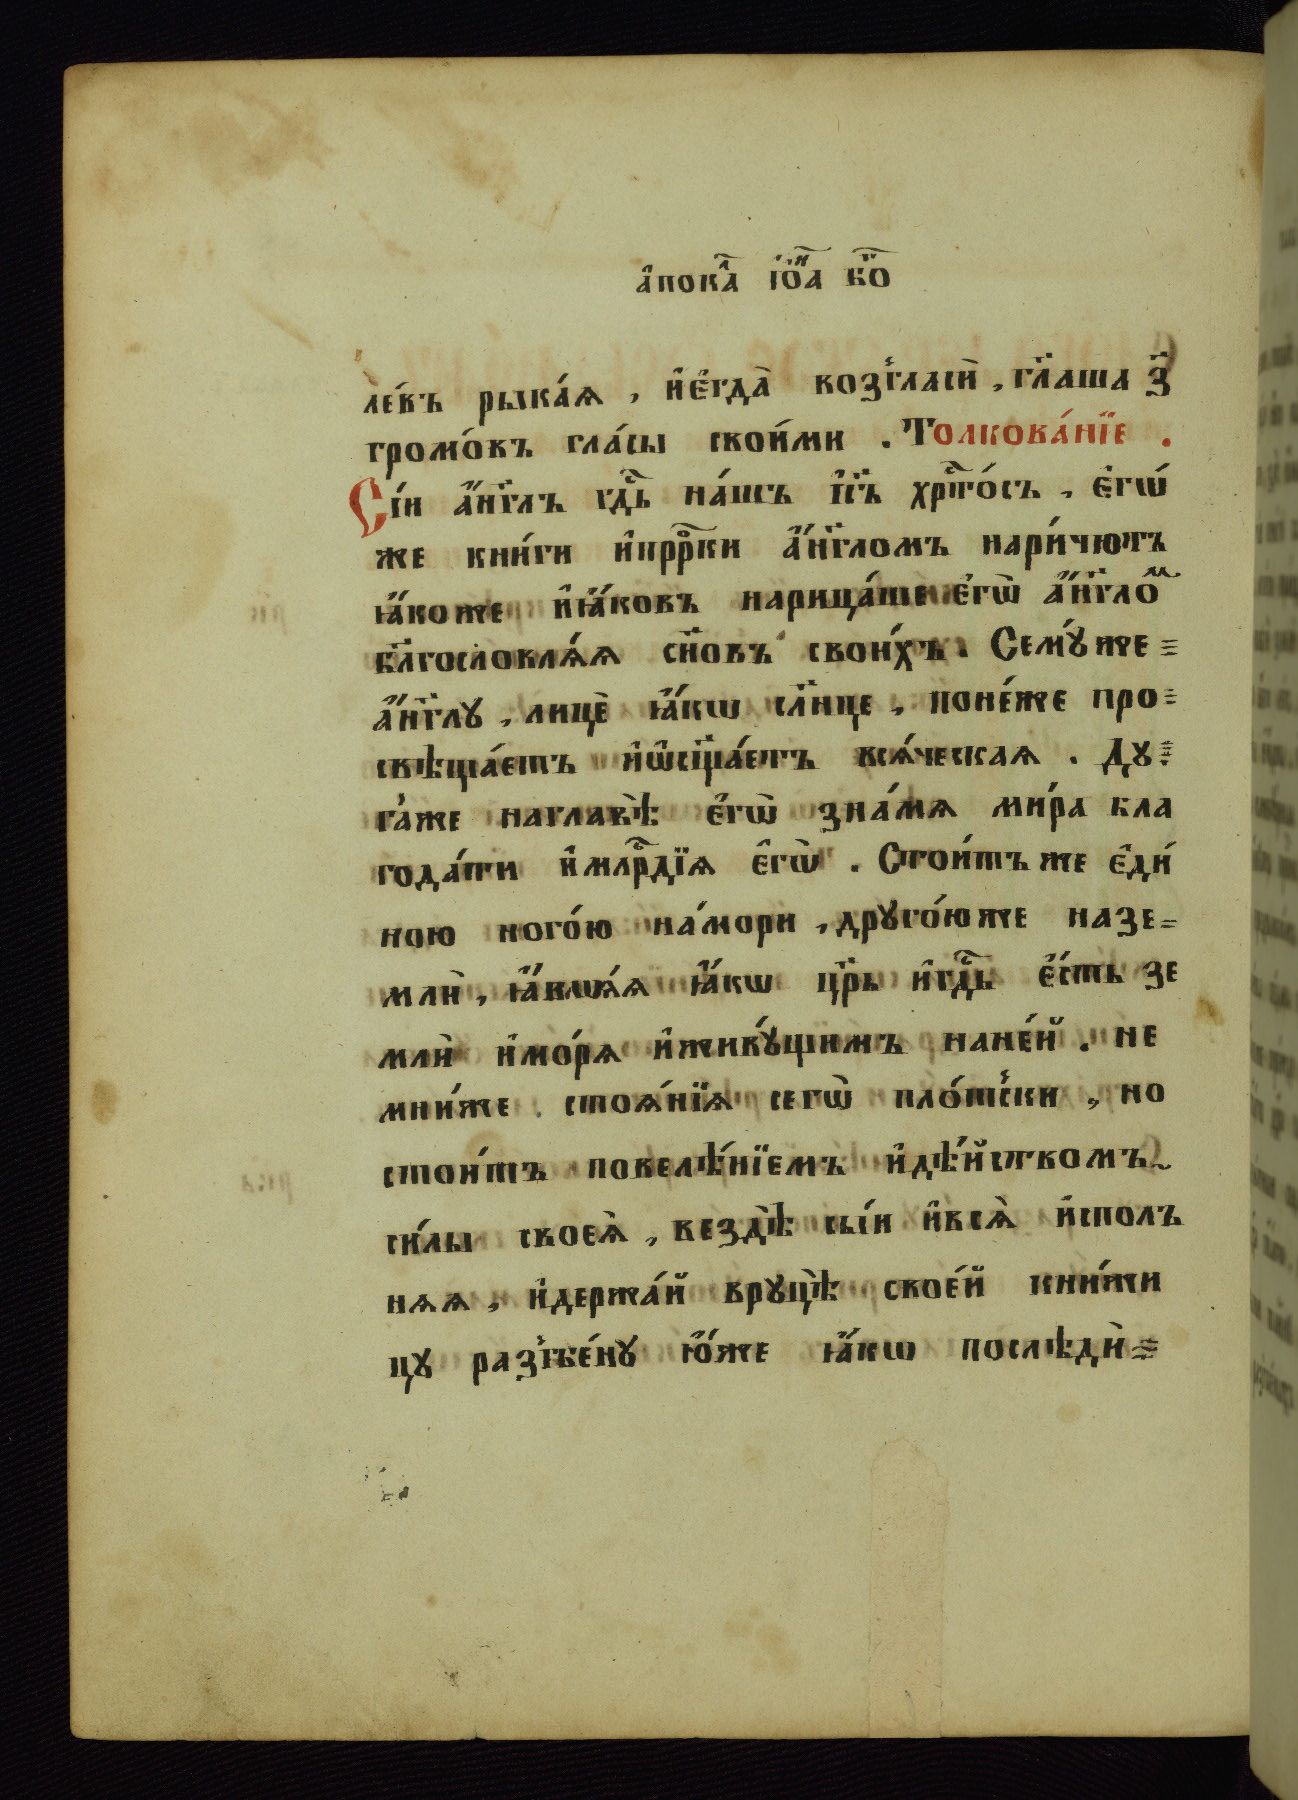 а҆пока҆л҇ і҆ѡ҃н҇а бг҃о
ле́въ рыка́ѧ , и҆є҆гда̀ возгласѝ , гл҃аша з҃
громо́въ гла́сы свои́ми . Толкова́нїе .
Сі́и а҆́нг҃лъ гдⷭ҇ь на́шъ і҆с҃ъ хрⷭ҇то́съ , є҆гѡ́
же кни́ги и҆прⷪ҇рки а҆́нг҃ломъ нари́чютъ
ꙗ҆́коже и҆ꙗ҆́ковъ нарица́ше є҆гѡ̀ а҆́нг҃лоⷨ
бл҃гословлѧ́ѧ сн҃овъ свои́хъ . Семꙋ́же =
а҆́нг҃лꙋ , лицѐ ꙗ҆́кѡ сл҃нце , поне́же про=
свѣща́єтъ и҆ѡ҆сщ҃а́єтъ всѧ́ческаѧ . Дꙋ=
га́же наглавѣ̀ є҆гѡ̀ зна́мѧ ми́ра бла
года́ти и҆млрⷭ҇дїѧ є҆гѡ̀ . Стои́тъ же є҆ди́
ною ного́ю на́мори , дрꙋго́юже назе=
млѝ , ꙗ҆влѧ́ѧ ꙗ҆́кѡ цр҃ь и҆гдⷭ҇ь є҆́сть зе
млѝ и҆мо́рѧ и҆живꙋ́щимъ нане́й . не
мни́же стоѧ́нїѧ сегѡ̀ пло́тски , но
стои́тъ повелѣ́нїемъ и҆дѣ́йством̾ъ
си́лы своеѧ̀ , вездѣ̀ сы́и и҆всѧ̀ и҆спол̾ъ
нѧѧ , и҆держа́й врꙋцѣ̀ свое́й кни́жи
цꙋ разгбе́нꙋ ю҆́же ꙗ҆́кѡ послѣдѝ=